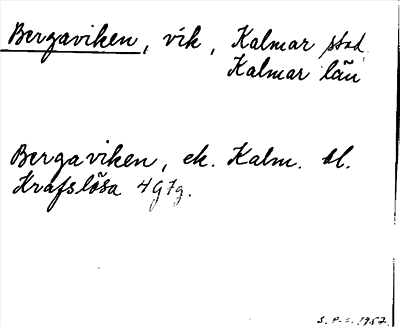 Bergaviken, vik, Kalmar stad
Kalmar län
Bergaviken, ek. Kalm. bl.
Krafslösa 4G7g.
S. P-s. 1957.